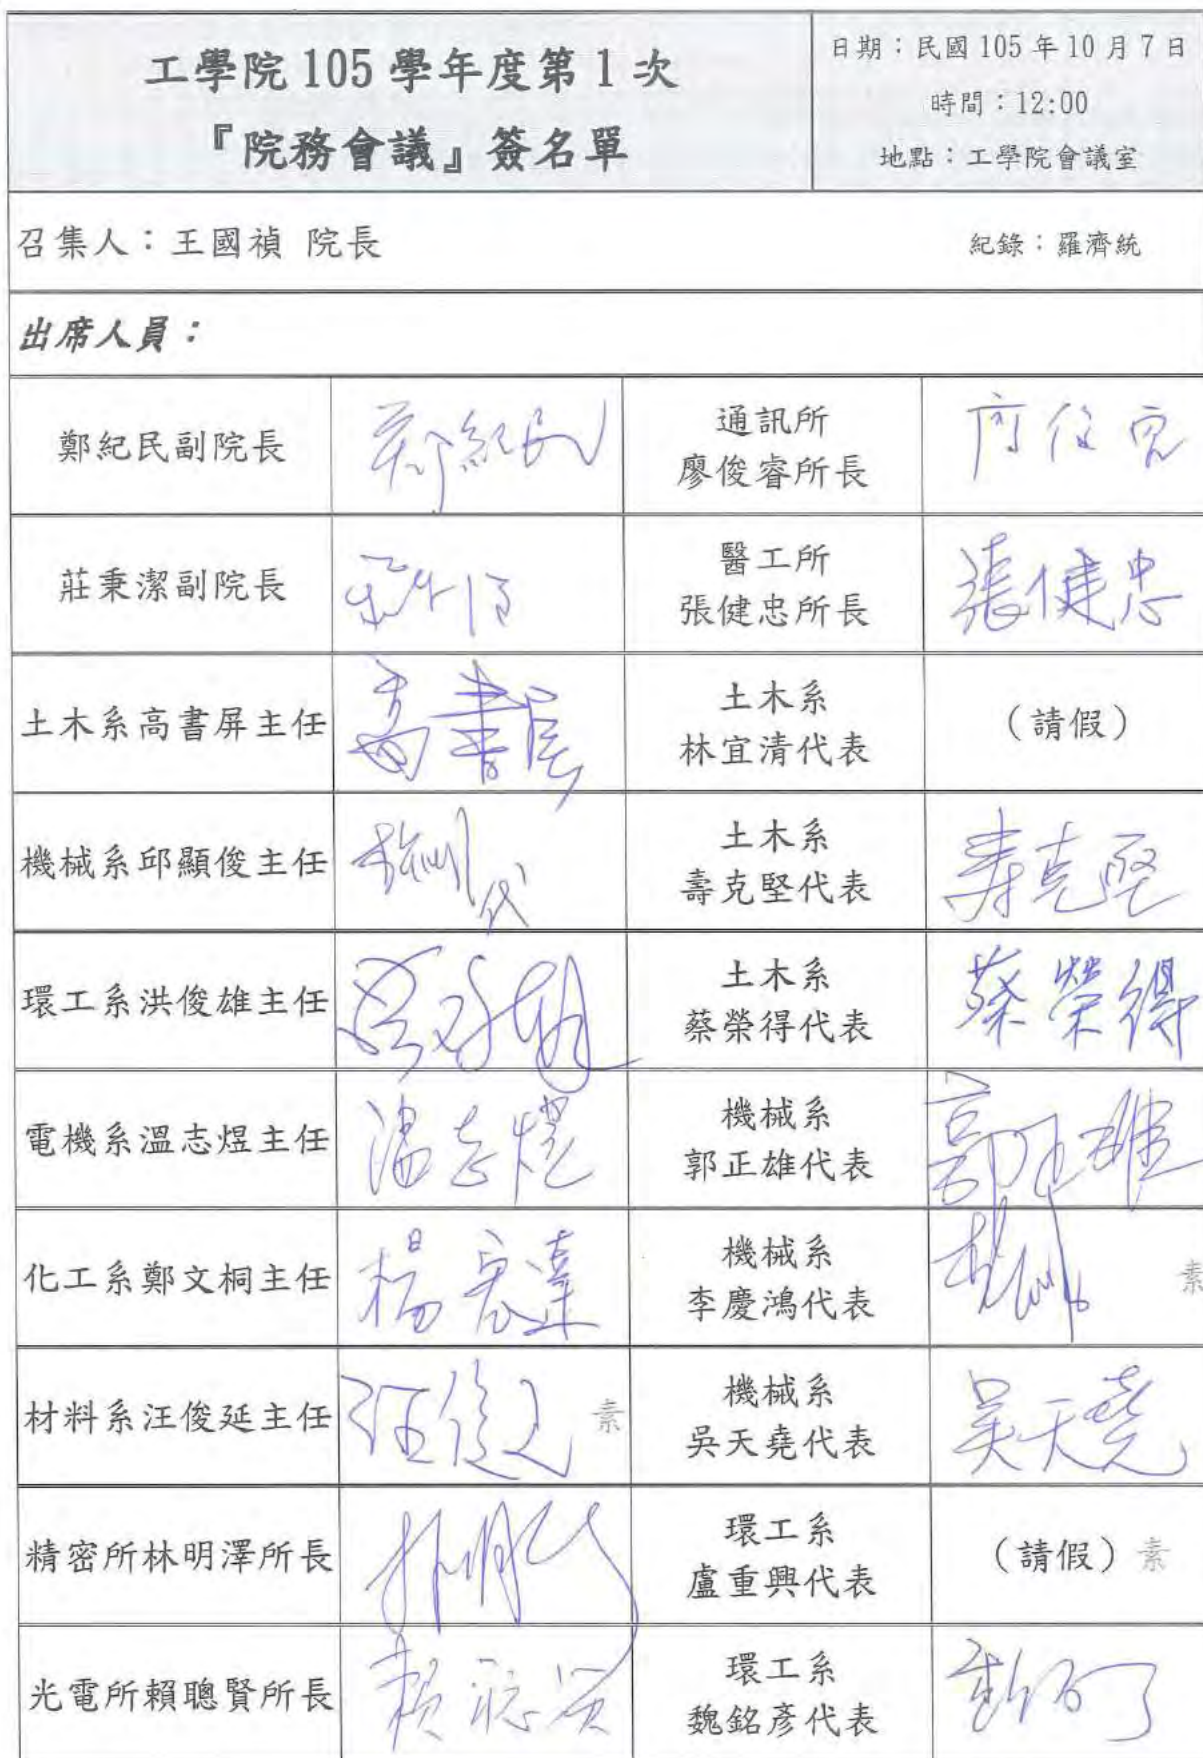 工學院 105 學年度第 1 次
『院務會議』簽名單
日期：民國 105 年 10 月 7 日
時間：12:00
地點：工學院會議室
召集人：王國禎 院長
紀錄：羅濟統
出席人員：
鄭紀民副院長
鄭紀民
通訊所
廖俊睿所長
莊秉潔副院長
醫工所
張健忠所長
張健忠
土木系高書屏主任
高書屏
土木系
林宜清代表
（請假）
機械系邱顯俊主任
代
土木系
壽克堅代表
壽克堅
環工系洪俊雄主任
土木系
蔡榮得代表
蔡榮得
電機系溫志煜主任
溫志煜
機械系
郭正雄代表
郭正雄
化工系鄭文桐主任
楊宏達
機械系
李慶鴻代表
素
材料系汪俊延主任
汪俊延
素
機械系
吳天堯代表
吳天堯
精密所林明澤所長
林明澤
環工系
盧重興代表
（請假）素
光電所賴聰賢所長
賴聰賢
環工系
魏銘彥代表